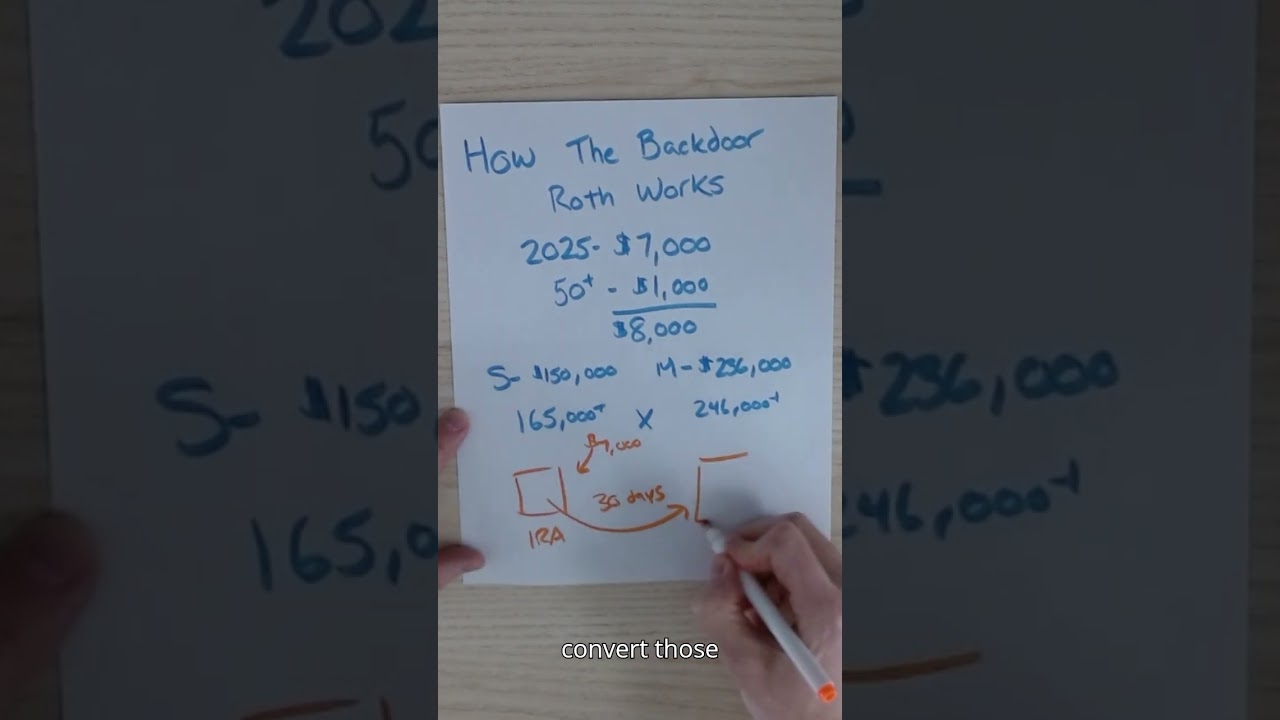 How The Backdoor
Roth Works
2025- $7,000
50+ - $1,000
$8,000
S- $150,000 M- $236,000
165,000+ X 246,000+
$7,000
30 days
IRA
convert those